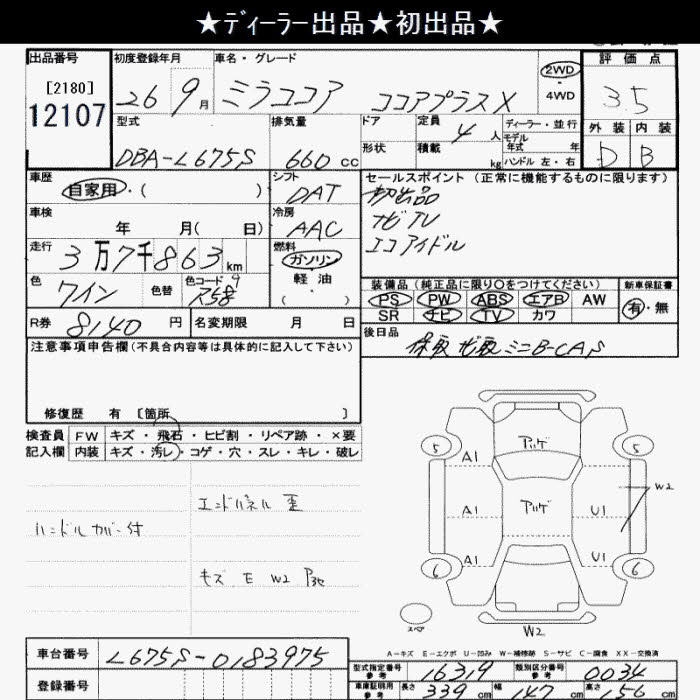 ★ディーラー出品★初出品★
出品番号
[2180]
12107
初度登録年月
26 9月
車名・グレード
ミラココア ココアプラスX
2WD
・
4WD
評価点
3.5
型式
DBA-L675S
排気量
660 cc
ドア
形状
定員 4 人
積載 kg
ディーラー・並行
モデル
年式 年
ハンドル 左・右
外装 内装
D B
車歴
自家用・( )
シフト
DAT
セールスポイント (正常に機能するものに限ります)
初出品
ナビTV
エコアイドル
車検
年 月( 日)
冷房
AAC
走行
3万7千863km
燃料
ガソリン
軽油
( )
色
ワイン
色替
色コード
R58
装備品 (純正品に限り○をつけてください)
PS PW ABS エアB AW
SR ナビ TV カワ
新車保証書
有・無
R券 8140円
名変期限 月 日
後日品
保取 ナビ取 ミニB-CAS
注意事項申告欄(不具合内容等は具体的に記入して下さい)
修復歴 有 [箇所 ]
検査員
記入欄
FW キズ・飛石・ヒビ割・リペア跡・×要
内装 キズ・汚レ・コゲ・穴・スレ・キレ・破レ
エンドパネル歪
ハンドルカバー付
キズ E W2
5 5
A1
アリゲ
W2
A1 アリゲ U1
A1 U1
6 6
スペア
W2
A-キズ E-エクボ U-凹み W-補修跡 S-サビ C-腐食 XX-交換済
車台番号 L675S-0183975
登録番号
型式指定番号
参考
16319
類別区分番号
参考
0034
車庫証明用
参考
長さ 339 cm 幅 147 cm 高さ 156 cm